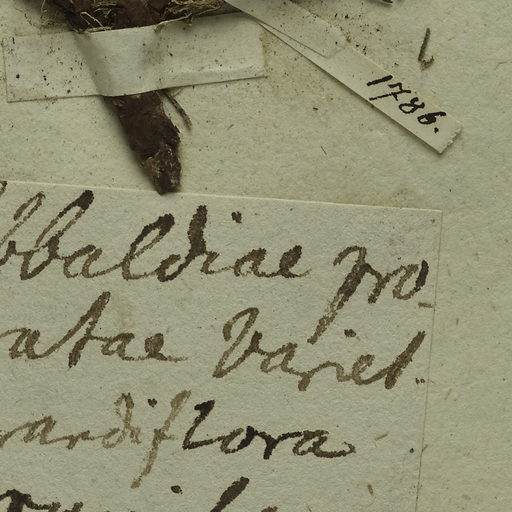 1786.
bbaldiae pro-
atae Variet.
randiflora